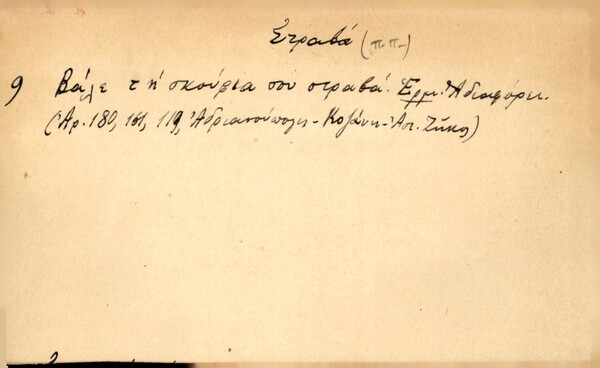 Στραβά (π.π.)
9 Βάλε τ'ή σκούφια σου στραβά. Ἑρμ. Ἀδιαφόρει.
(Ἀρ. 180, 161, 119, Ἀδριανούπολη - Κοζάνη - Ἀστ. Ζῆκος)